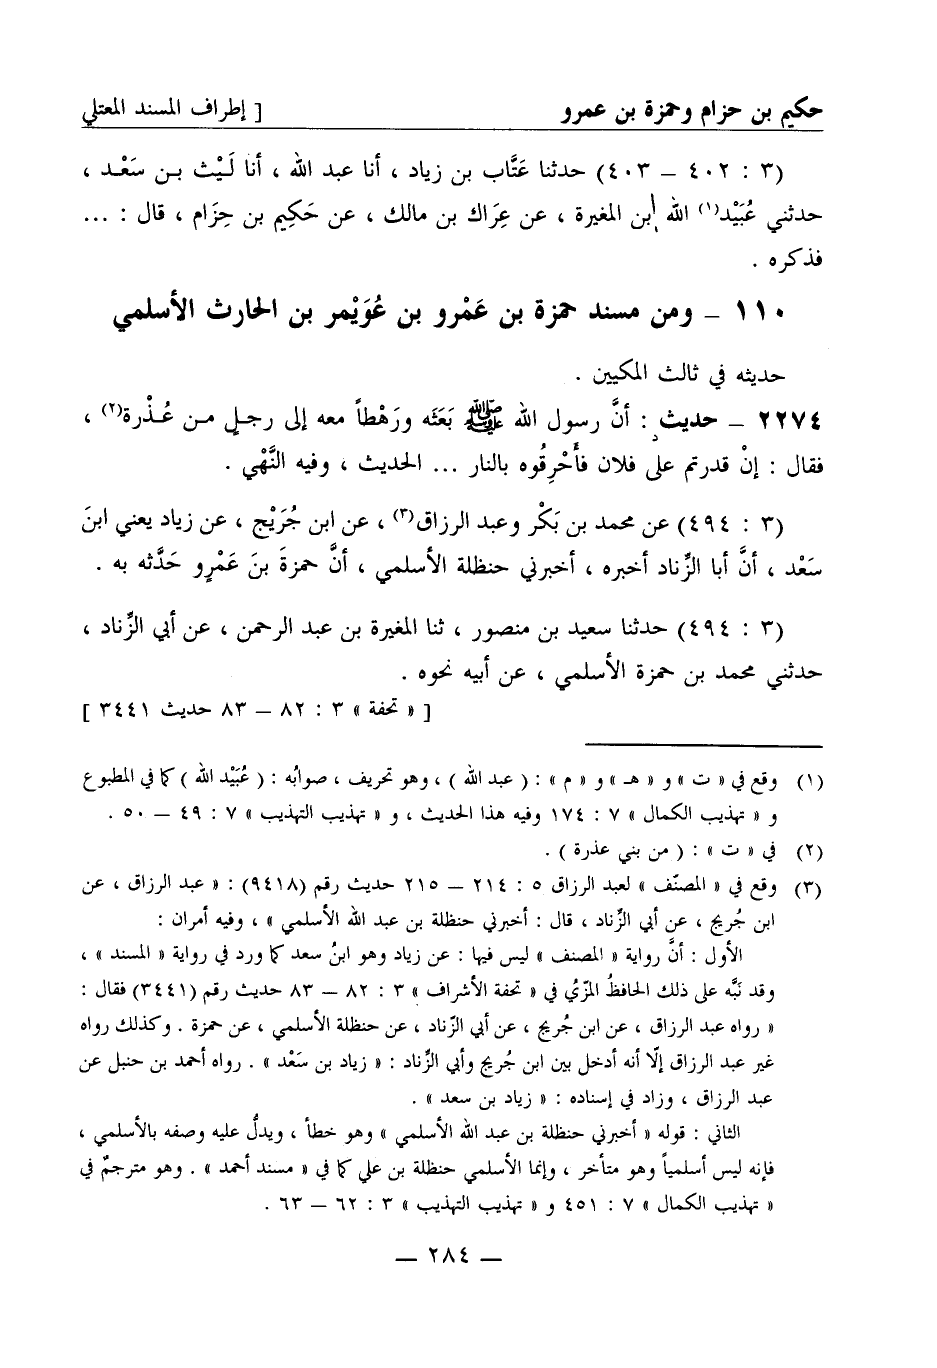 حكيم بن حزام وحمزة بن عمرو [ إطراف المسند المعتلي
(٣ : ٤٠٢ – ٤٠٣) حدثنا عَتَّاب بن زياد ، أنا عبد الله ، أنا لَيْث بن سَعْد ،
حدثني عُبَيْد(١) الله أبن المغيرة ، عن عِرَاك بن مالك ، عن حَكِيم بن حِزَام ، قال : ...
فذكره .
١١٠ – ومن مسند حمزة بن عَمْرو بن عُوَيْمر بن الحارث الأسلمي
حديثه في ثالث المكيين .
٢٢٧٤ – حديث : أنَّ رسول الله ﷺ بَعَثَه ورَهْطاً معه إلى رجلٍ من عُذْرة(٢) ،
فقال : إنْ قدرتم على فلان فأَحْرِقُوه بالنار ... الحديث ، وفيه النَّهْي .
(٣ : ٤٩٤) عن محمد بن بَكْر وعبد الرزاق(٣) ، عن ابن جُرَيْج ، عن زياد يعني ابنَ
سَعْد ، أنَّ أبا الزِّناد أخبره ، أخبرني حنظلة الأسلمي ، أنَّ حمزةَ بنَ عَمْرٍو حَدَّثه به .
(٣ : ٤٩٤) حدثنا سعيد بن منصور ، ثنا المغيرة بن عبد الرحمن ، عن أبي الزِّناد ،
حدثني محمد بن حمزة الأسلمي ، عن أبيه نحوه .
[ « تحفة » ٣ : ٨٢ – ٨٣ حديث ٣٤٤١ ]
(١) وقع في « ت » و « هـ » و « م » : ( عبد الله ) ، وهو تحريف ، صوابُه : ( عُبَيْد الله ) كما في المطبوع
و « تهذيب الكمال » ٧ : ١٧٤ وفيه هذا الحديث ، و « تهذيب التهذيب » ٧ : ٤٩ – ٥٠ .
(٢) في « ت » : ( من بني عذرة ) .
(٣) وقع في « المصنّف » لعبد الرزاق ٥ : ٢١٤ – ٢١٥ حديث رقم (٩٤١٨) : « عبد الرزاق ، عن
ابن جُريج ، عن أبي الزِّناد ، قال : أخبرني حنظلة بن عبد الله الأسلمي » ، وفيه أمران :
الأول : أنَّ رواية « المصنف » ليس فيها : عن زياد وهو ابنُ سعد كما ورد في رواية « المسند » ،
وقد نَبَّه على ذلك الحافظُ المزّي في « تحفة الأشراف » ٣ : ٨٢ – ٨٣ حديث رقم (٣٤٤١) فقال :
« رواه عبد الرزاق ، عن ابن جُريج ، عن أبي الزّناد ، عن حنظلة الأسلمي ، عن حمزة . وكذلك رواه
غير عبد الرزاق إلّا أنه أدخل بين ابن جُريج وأبي الزِّناد : « زياد بن سَعْد » . رواه أحمد بن حنبل عن
عبد الرزاق ، وزاد في إسناده : « زياد بن سعد » .
الثاني : قوله « أخبرني حنظلة بن عبد الله الأسلمي » وهو خطأ ، ويدلُّ عليه وصفه بالأسلمي ،
فإنه ليس أسلمياً وهو متأخر ، وإنما الأسلمي حنظلة بن علي كما في « مسند أحمد » . وهو مترجمٌ في
« تهذيب الكمال » ٧ : ٤٥١ و « تهذيب التهذيب » ٣ : ٦٢ – ٦٣ .
– ٢٨٤ –